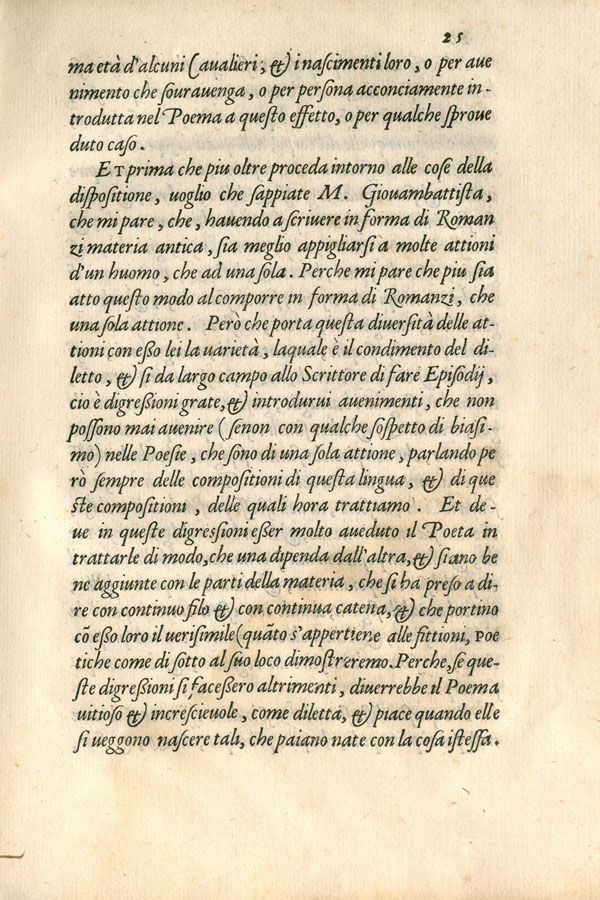 25
ma età d'alcuni Caualieri, & i nascimenti loro, o per aue
nimento che sourauenga, o per persona acconciamente in-
trodutta nel Poema a questo effetto, o per qualche sproue
duto caso.
ET prima che piu oltre proceda intorno alle cose della
dispositione, uoglio che sappiate M. Giouambattista,
che mi pare, che, hauendo a scriuere in forma di Roman
zi materia antica, sia meglio appigliarsi a molte attioni
d'un huomo, che ad una sola. Perche mi pare che piu sia
atto questo modo al comporre in forma di Romanzi, che
una sola attione. Però che porta questa diuersità delle at-
tioni con esso lei la uarietà, laquale è il condimento del di-
letto, & si da largo campo allo Scrittore di fare Episodij,
cio è digressioni grate, & introdurui auenimenti, che non
possono mai auenire (senon con qualche sospetto di biasi-
mo) nelle Poesie, che sono di una sola attione, parlando pe
rò sempre delle compositioni di questa lingua, & di que
ste compositioni, delle quali hora trattiamo. Et de-
ue in queste digressioni esser molto aueduto il Poeta in
trattarle di modo, che una dipenda dall'altra, & siano be
ne aggiunte con le parti della materia, che si ha preso a di-
re con continuo filo & con continua catena, & che portino
cõ esso loro il uerisimile (quãto s'appertiene alle fittioni, poe
tiche come di sotto al suo loco dimostreremo. Perche, se que-
ste digressioni si facessero altrimenti, diuerrebbe il Poema
uitioso & increscieuole, come diletta, & piace quando elle
si ueggono nascere tali, che paiano nate con la cosa istessa.